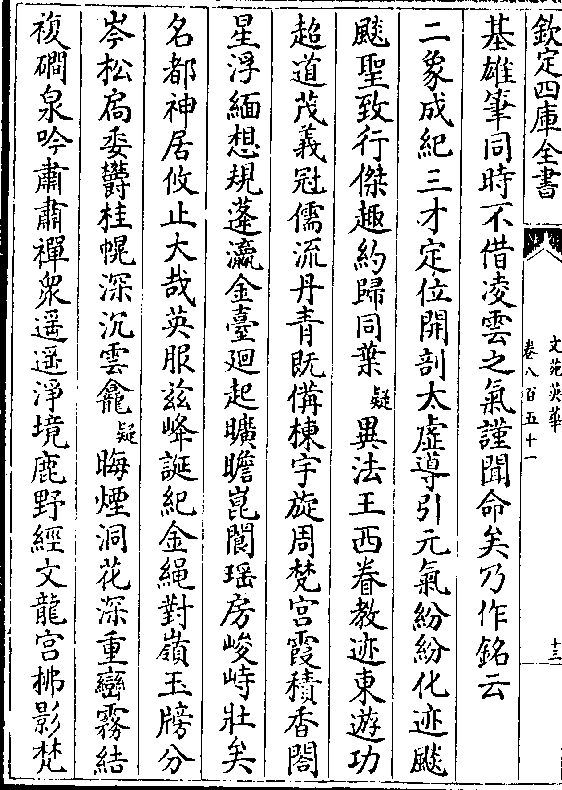 欽定四庫全書
文苑英華
卷八百五十一
十三
基雄筆同時不借凌雲之氣謹聞命矣乃作銘云
二象成紀三才定位開剖太虛導引元氣紛紛化迹颷
颷聖致行傑趣約歸同葉疑異法王西眷教迹東遊功
超道茂義冠儒流丹青既備棟宇旋周梵宮霞積香閣
星浮緬想規蓬瀛金臺迴起曠瞻崑閬瑶房峻峙壯矣
名都神居攸止大哉英服兹峰誕紀金繩對嶺玉牓分
岑松扃委欝桂幌深沉雲龕疑晦煙洞花深重巒霧結
複磵泉吟肅肅禪衆遥遥淨境鹿野經文龍宫拂影梵